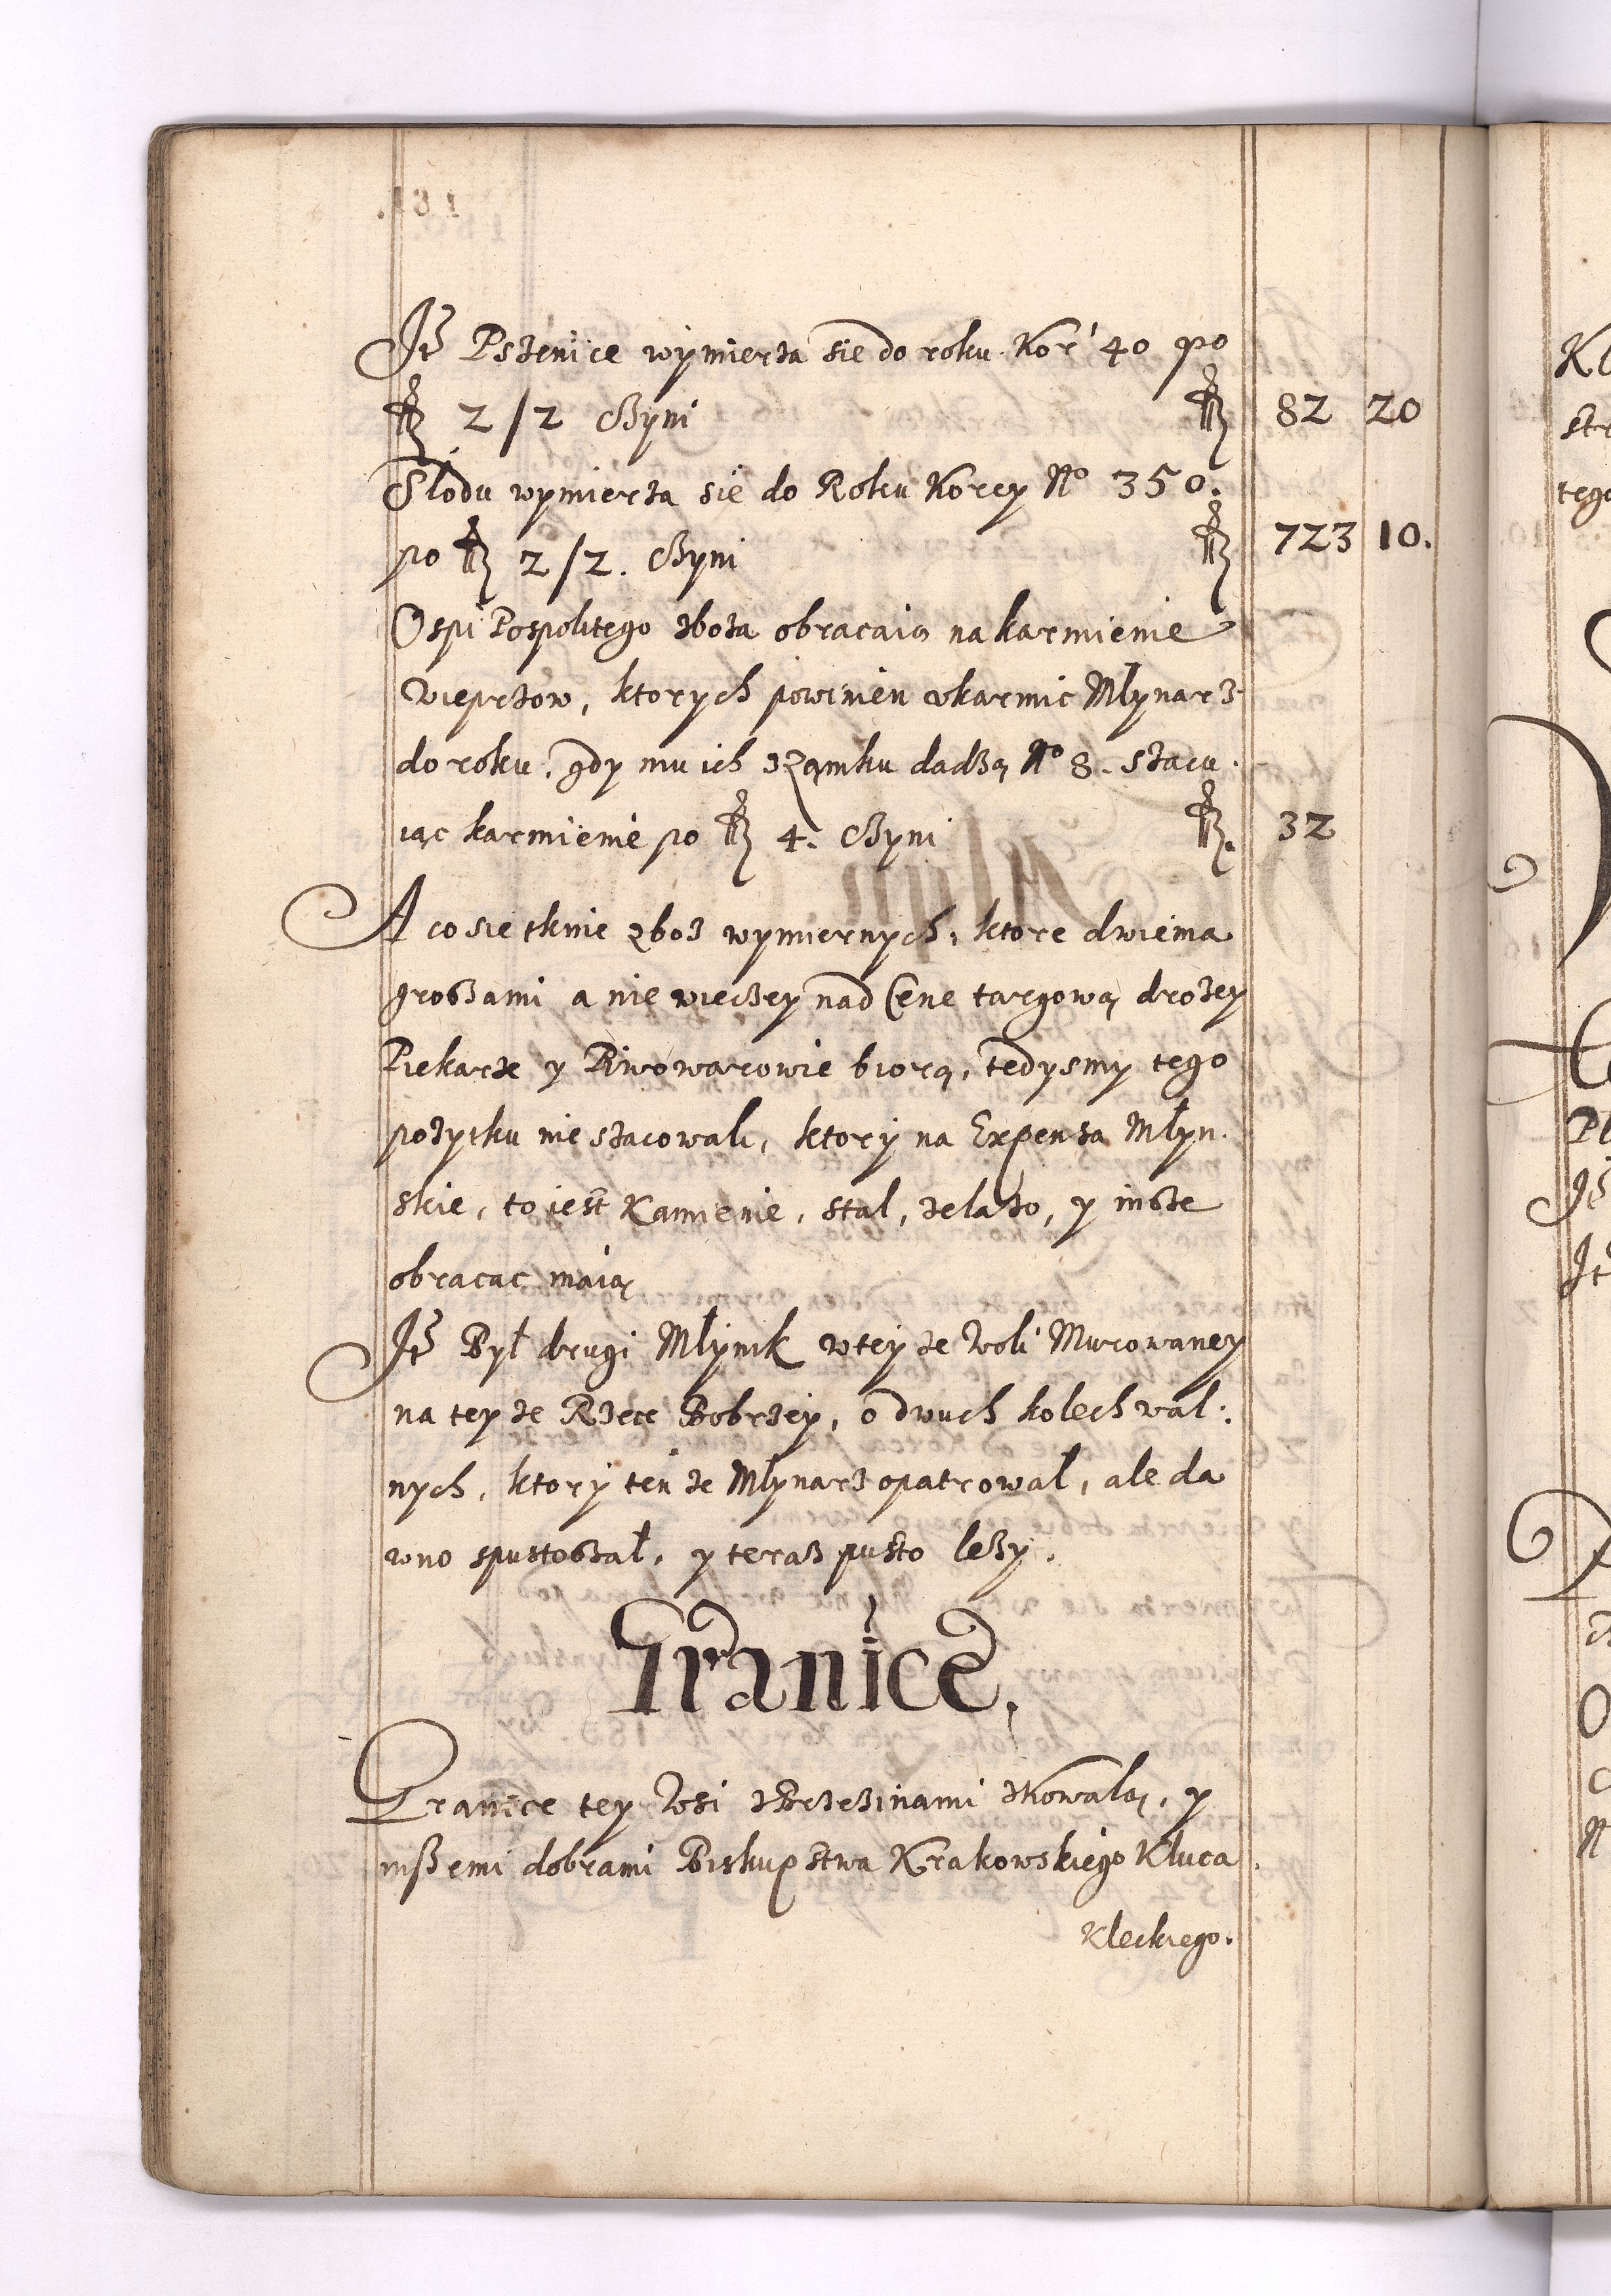 Jt Pszenice wymierza sie do roku Kor 40 po
fl 2/2 czyni fl 82 20
Słodu wymierza sie do Roku Korcy No 350.
po fl 2/2. czyni fl 723 10.
Ospi Pospolitego zboza obracaią na karmienie
wieprzow, ktorych powinien ukarmic Młynarz
do roku. gdy mu ich z Zamku dadzą No 8. szacu.
iąc karmienie po fl 4. czyni fl. 32
A co sie tknie zboz wymiernych, ktore dwiema
groszami a nie wieczey nad Cene targową drozey
Piekarze y Piwowarowie biorą, tedysmy tego
pozytku nie szacowali, ktory na Expensa Młyn.
skie, to iest Kamienie, stal, zelazo, y insze
obracac maią
Jt Był drugi Młynik w tey ze Woli Murowaney
na tey ze Rzece Bobrzey, o dwuch kolech wal:
nych, ktory ten ze Młynarz opatrował, ale da
wno spustoszał, y teraz pusto lezy.
Granice.
Granice tey Wsi z Brzezinami z Kowalą, y
inszemi dobrami Biskupstwa Krakowskiego Kluca
Kleckiego.